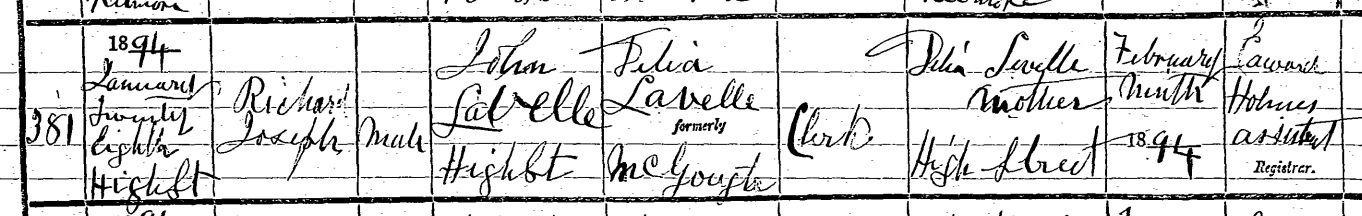 381
1894
January
Twenty
Eighth
High St
Richard
Joseph
Male
John
Lavelle
High St
Delia
Lavelle
formerly
McGough
Clerk
Delia Levelle
Mother
High Street
February
Ninth
1894
Edward
Holmes
assistant
Registrar.